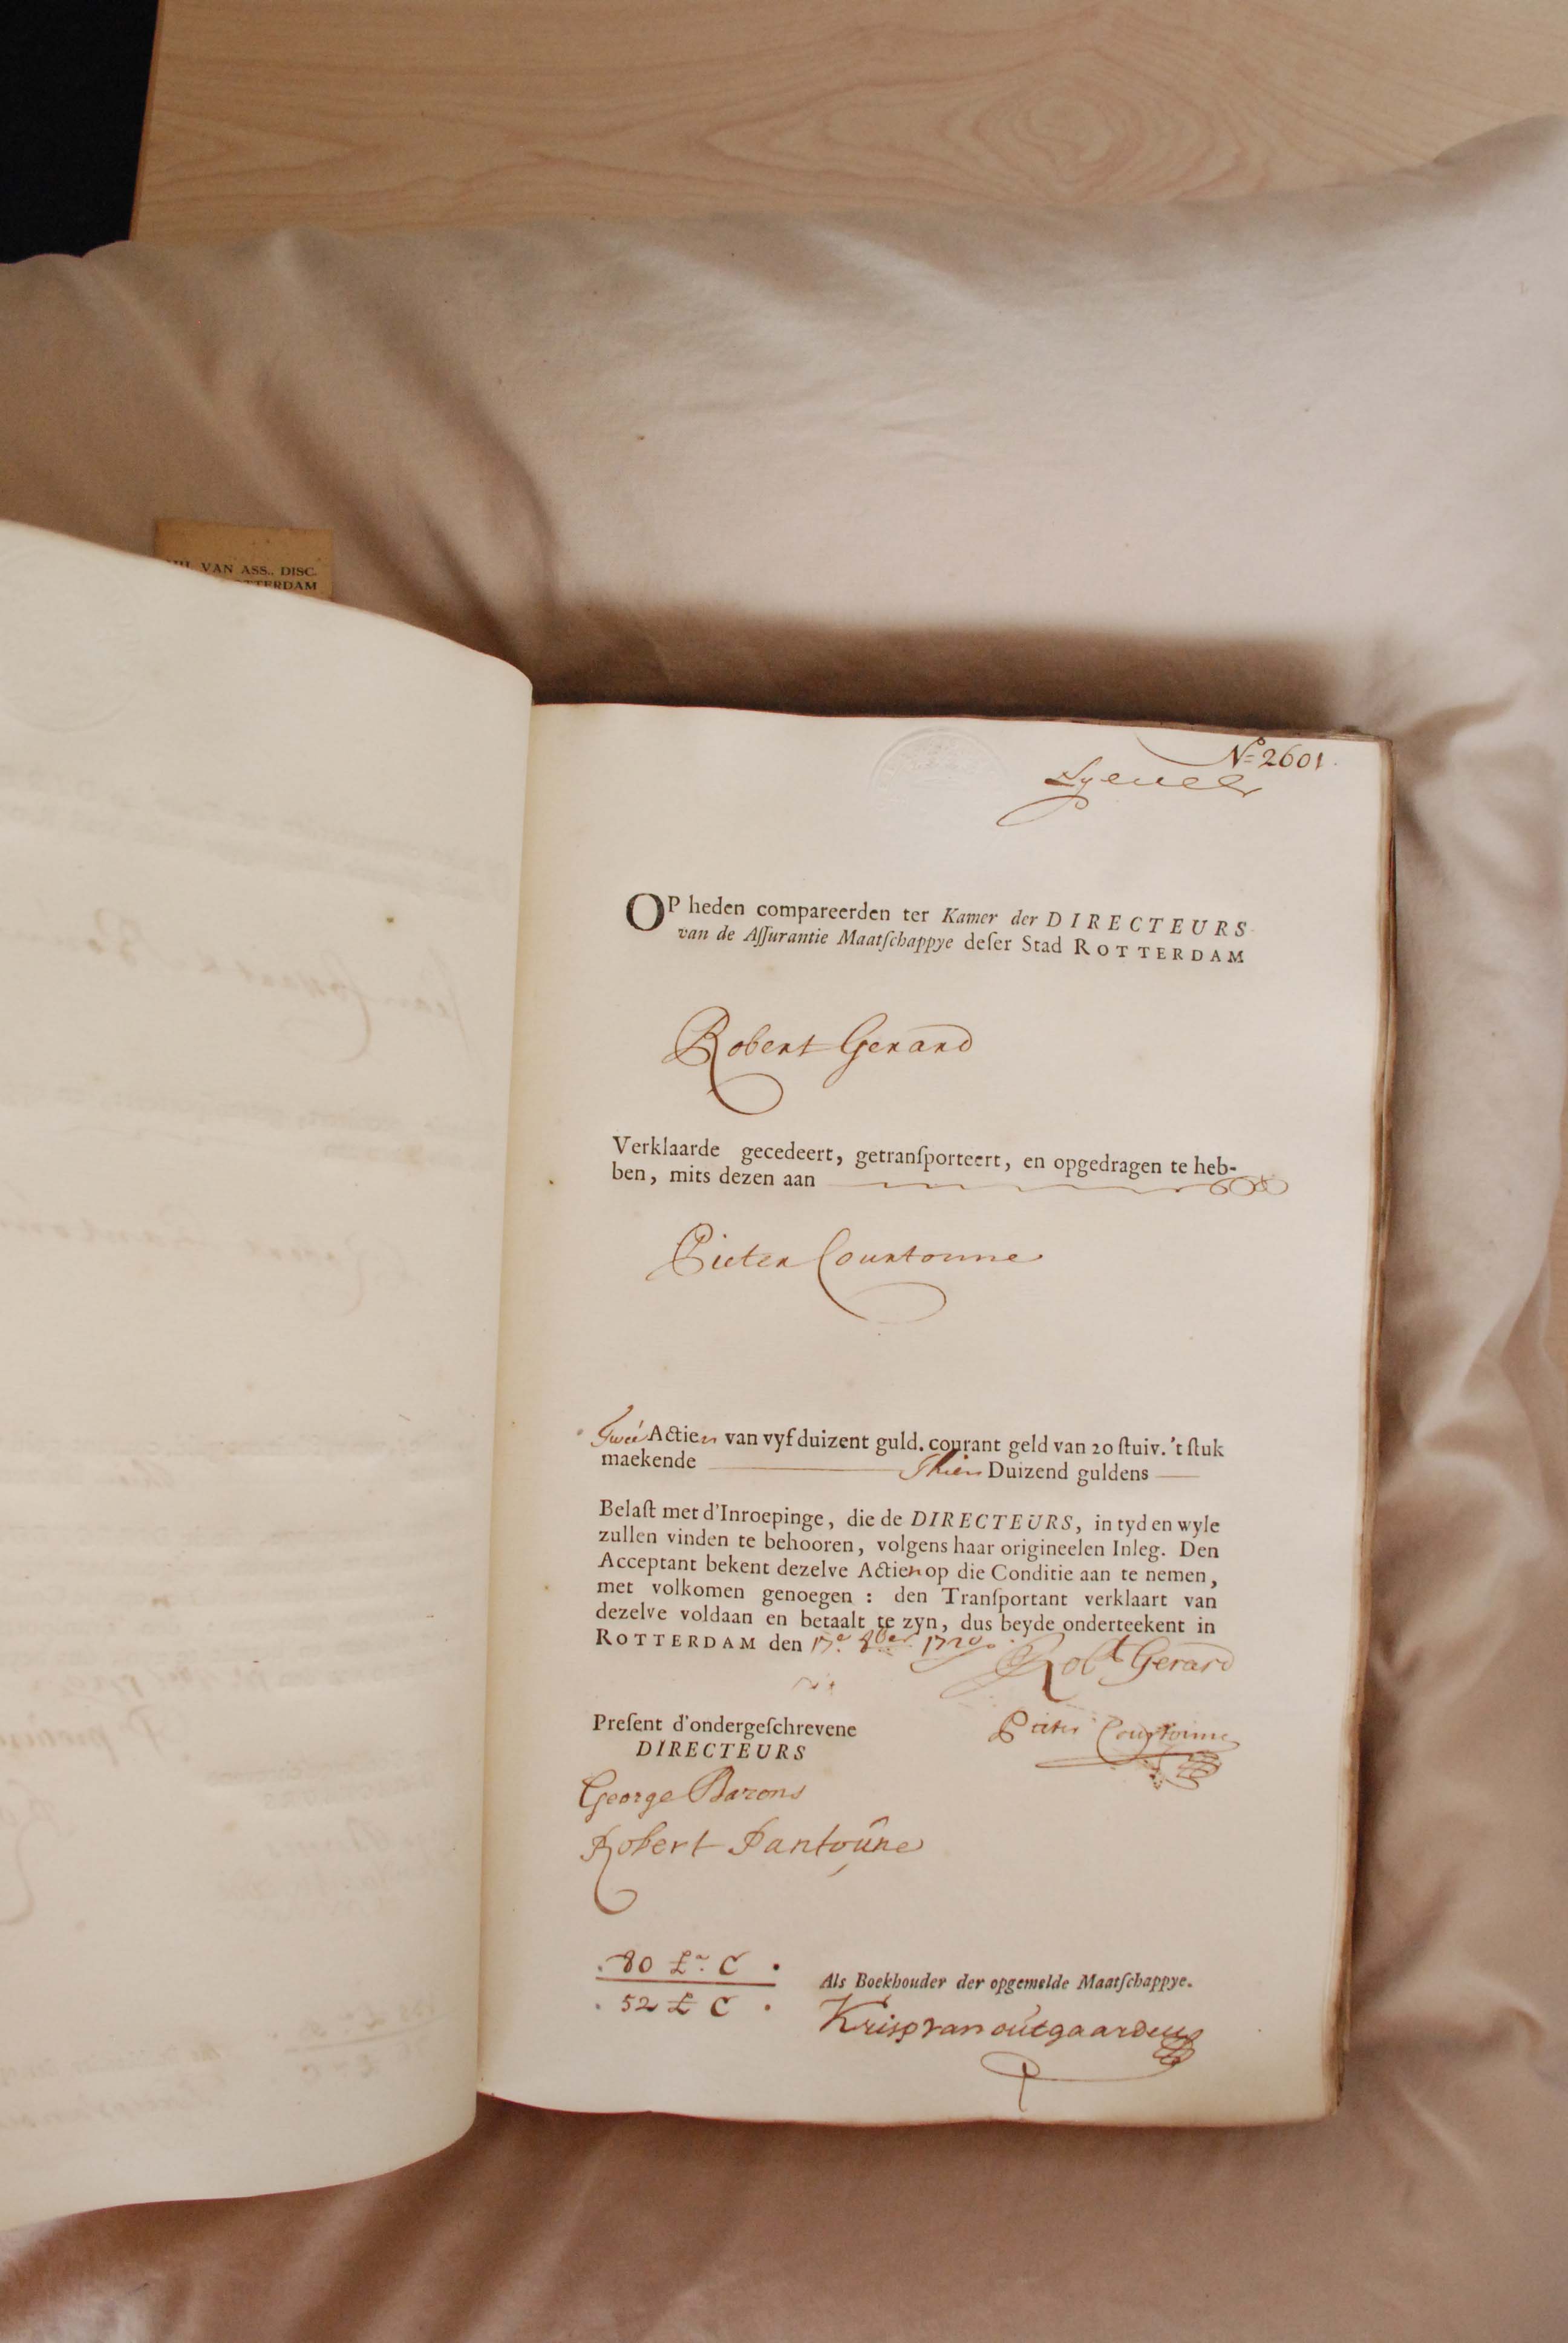 VAN ASS., DISC.
TTERDAM
No 2601.
OP heden compareerden ter Kamer der DIRECTEURS
van de Aſſurantie Maatſchappye deſer Stad ROTTERDAM
Robert Gerard
Verklaarde gecedeert, getranſporteert, en opgedragen te heb-
ben, mits dezen aan
Pieter Courtonne
Twee Actien van vyf duizent guld. courant geld van 20 ſtuiv. 't ſtuk
maekende Thien Duizend guldens
Belaſt met d'Inroepinge, die de DIRECTEURS, in tyd en wyle
zullen vinden te behooren, volgens haar origineelen Inleg. Den
Acceptant bekent dezelve Actien op die Conditie aan te nemen,
met volkomen genoegen : den Tranſportant verklaart van
dezelve voldaan en betaalt te zyn, dus beyde onderteekent in
ROTTERDAM den 17e 8ber 1720
Robt Gerard
Preſent d'ondergeſchrevene
DIRECTEURS
Pieter Courtonne
George Barons
Robert Dantoüne
80 £r. C
52 £ C
Als Boekhouder der opgemelde Maatſchappye.
Krisp van outgaarden